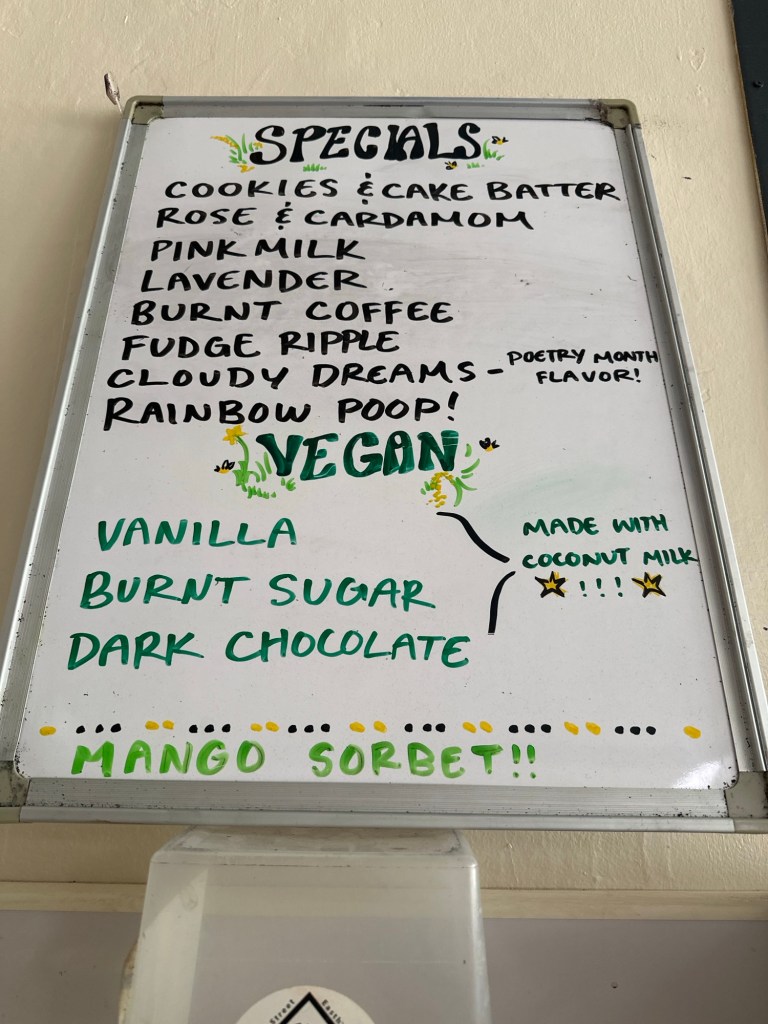 SPECIALS
COOKIES & CAKE BATTER
ROSE & CARDAMOM
PINK MILK
LAVENDER
BURNT COFFEE
FUDGE RIPPLE
CLOUDY DREAMS - POETRY MONTH
FLAVOR!
RAINBOW POOP!
VEGAN
VANILLA
BURNT SUGAR
DARK CHOCOLATE
MADE WITH
COCONUT MILK
!!!
MANGO SORBET!!
Street